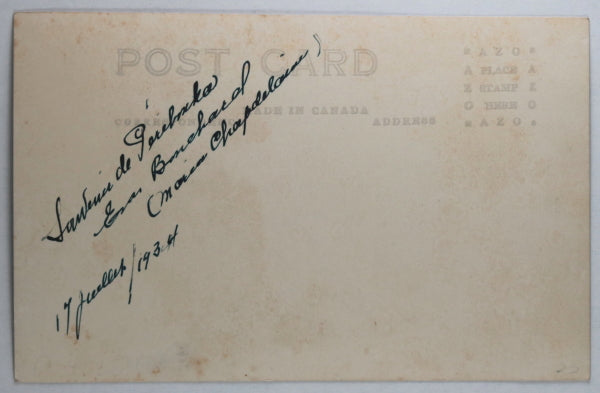 POST CARD
MADE IN CANADA
CORRESPONDENCE ADDRESS
AZO
A PLACE A
Z STAMP Z
O HERE O
AZO
Souvenir de Péribonka
Eva Bouchard
(Maria Chapdelaine)
17 Juillet/1934